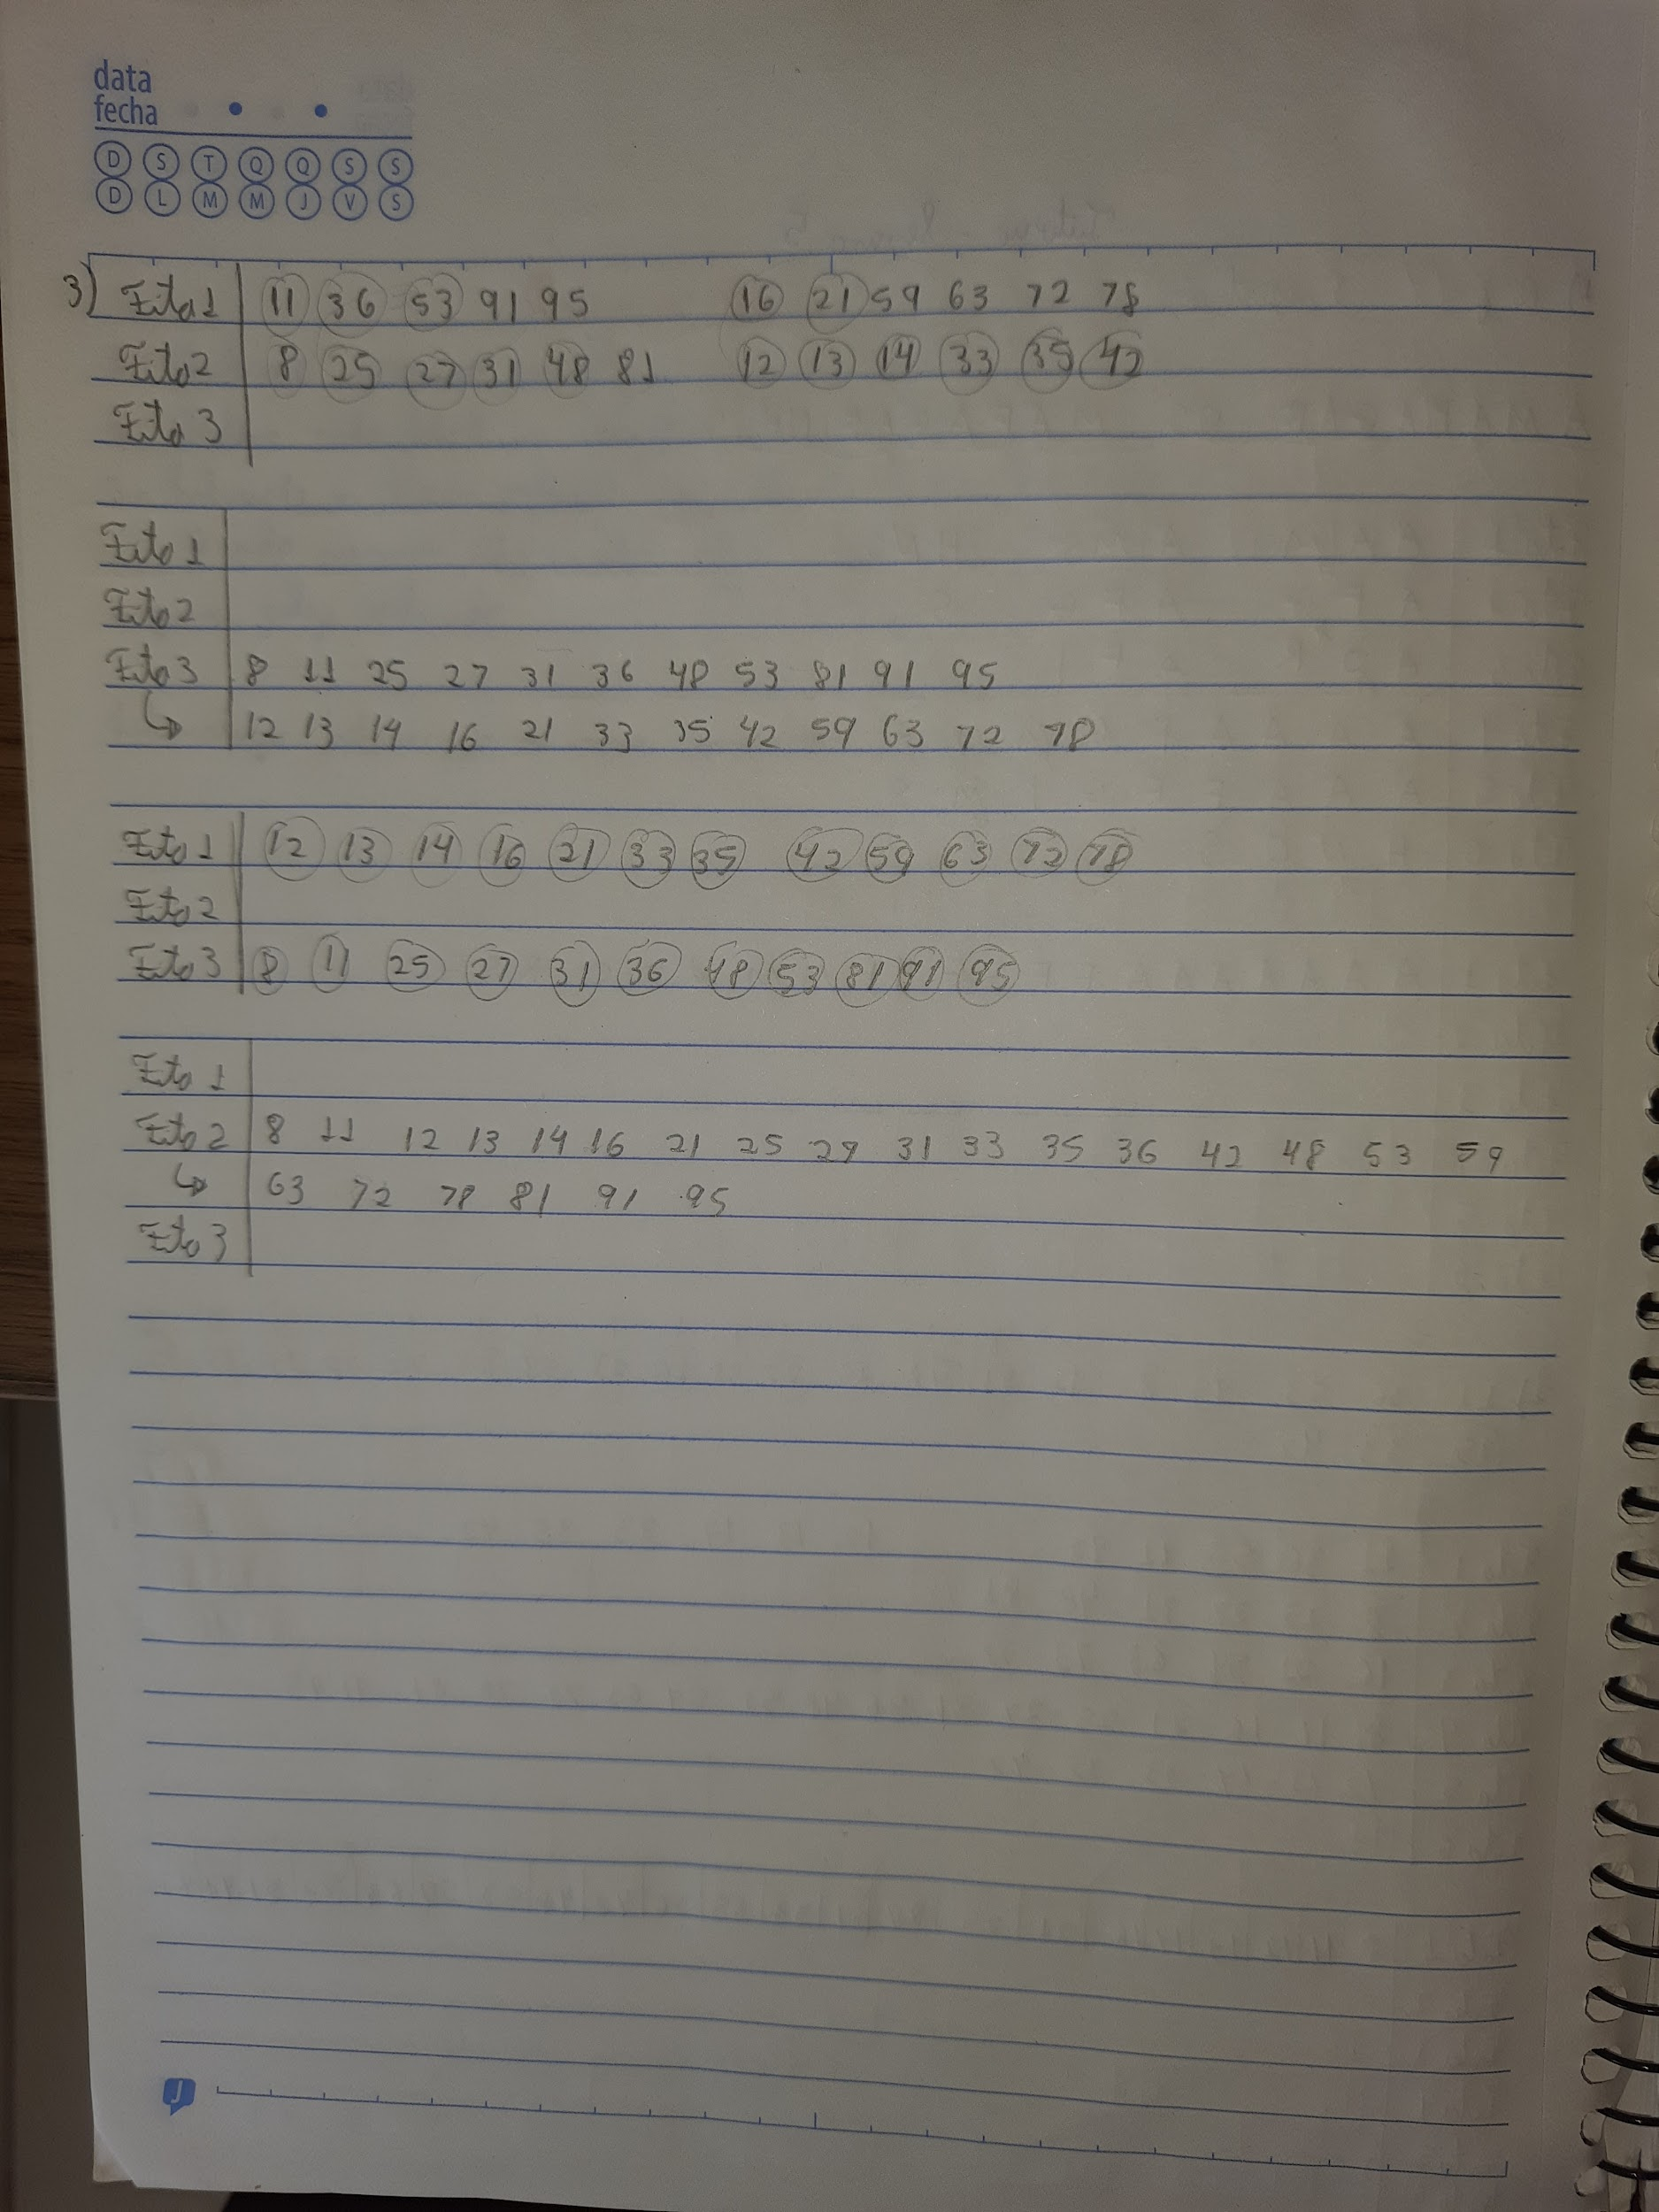 data
fecha
D S T Q Q S S
D L M M J V S
3) Fita 1 11 36 53 91 95 16 21 59 63 72 78
Fita 2 8 25 27 31 48 81 12 13 14 33 35 42
Fita 3
Fita 1
Fita 2
Fita 3 8 11 25 27 31 36 48 53 81 91 95
↳ 12 13 14 16 21 33 35 42 59 63 72 78
Fita 1 12 13 14 16 21 33 35 42 59 63 72 78
Fita 2
Fita 3 8 11 25 27 31 36 48 53 81 91 95
Fita 1
Fita 2 8 11 12 13 14 16 21 25 27 31 33 35 36 42 48 53 59
↳ 63 72 78 81 91 95
Fita 3
J